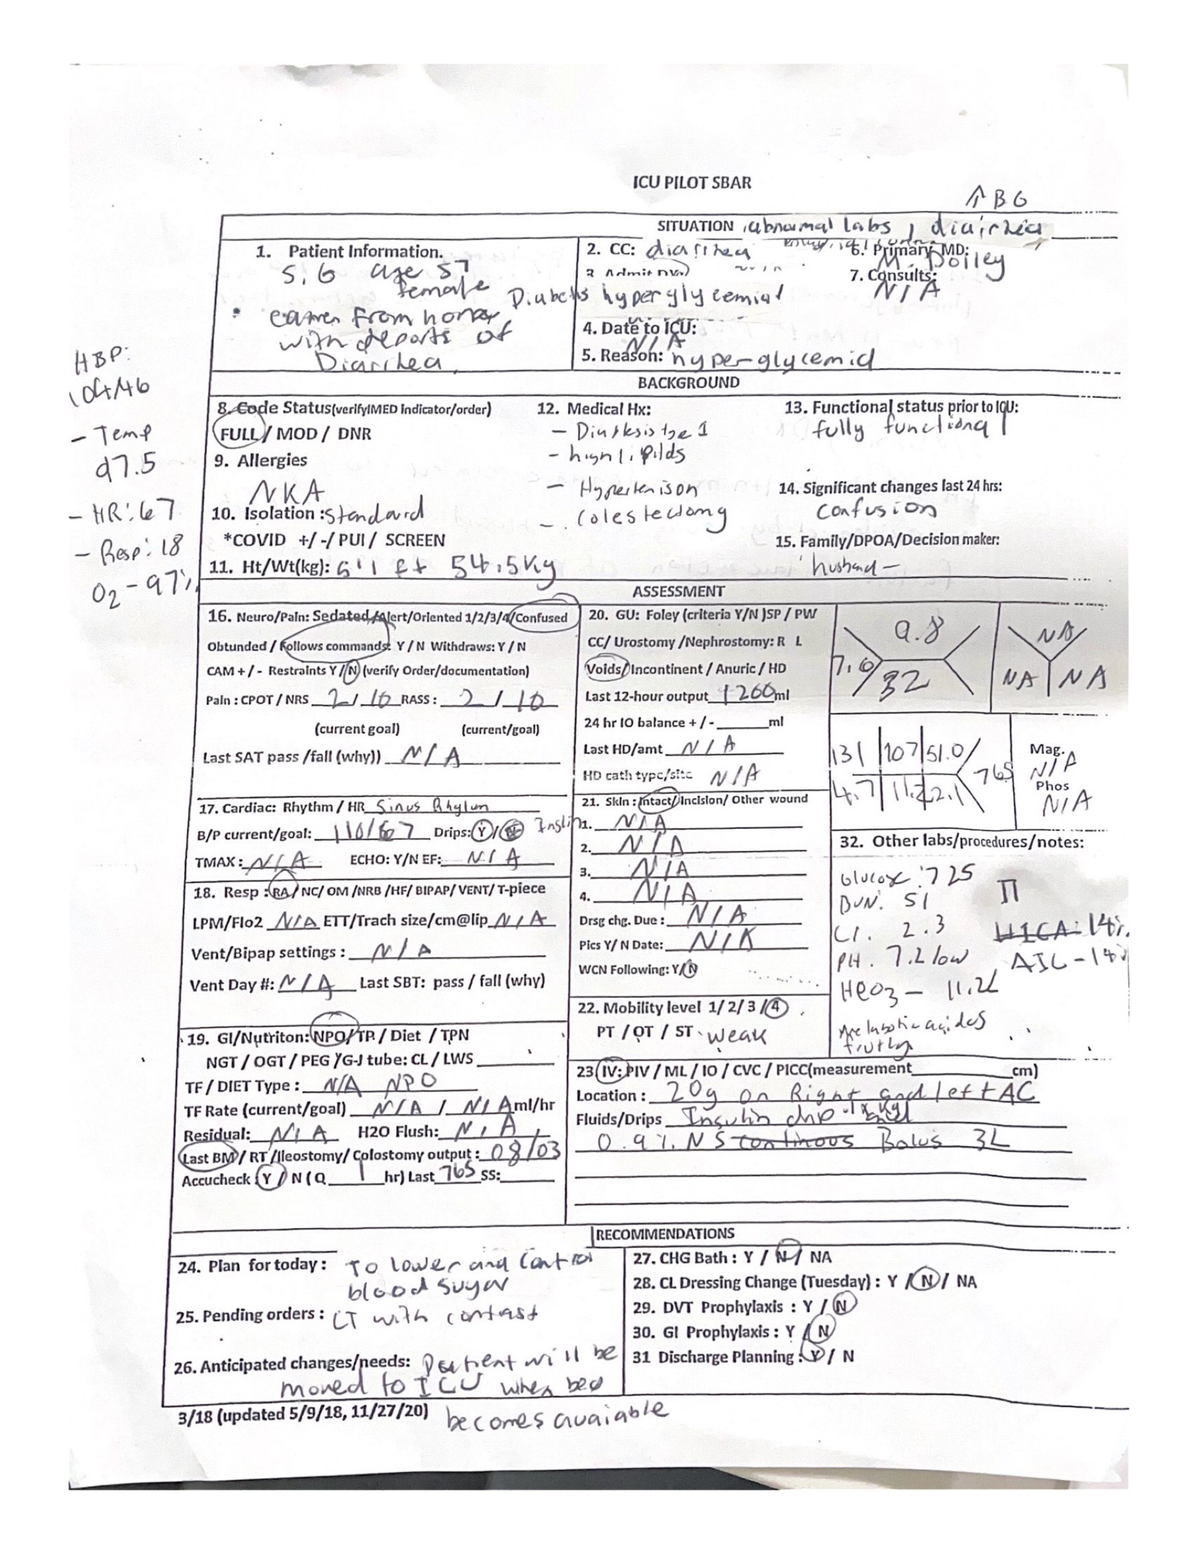 ICU PILOT SBAR
↑ BG
SITUATION abnormal labs, diairhea
1. Patient Information.
S, G age 57
female
• from home
with deports of
Diarrhea
2. CC: diarrhea
3. Admit Dx)
Diabets hyperglycemial
4. Date to ICU:
N/A
5. Reason: hyper-glycemid
6. Primary MD:
M. Dolley
7. Consults:
N/A
HBP:
104/46
- Temp
97.5
- HR: 67
- Resp: 18
O2 - 97%
BACKGROUND
8. Code Status(verifyIMED indicator/order)
FULL / MOD / DNR
9. Allergies
NKA
10. Isolation : Standard
*COVID +/ -/ PUI / SCREEN
11. Ht/Wt(kg): 5'1 ft 54.5Kg
12. Medical Hx:
- type 1
- high lipilds
- Hypertenison
- Colestectomy
13. Functional status prior to ICU:
fully functional
14. Significant changes last 24 hrs:
Confusion
15. Family/DPOA/Decision maker:
husband -
ASSESSMENT
16. Neuro/Pain: Sedated/Alert/Oriented 1/2/3/4/Confused
Obtunded / Follows commands: Y / N Withdraws: Y / N
CAM + / - Restraints Y / N (verify Order/documentation)
Pain : CPOT / NRS 2 / 10 RASS : 2 / 10
(current goal) (current/goal)
Last SAT pass /fall (why)) N/A
17. Cardiac: Rhythm / HR Sinus Rhylum
B/P current/goal: 110/67 Drips: Y / N
TMAX : N/A ECHO: Y/N EF: N/A
18. Resp : RA / NC/ OM /NRB /HF/ BIPAP/ VENT/ T-piece
LPM/FIo2 N/A ETT/Trach size/cm@lip N/A
Vent/Bipap settings : N/A
Vent Day #: N/A Last SBT: pass / fall (why)
19. GI/Nutriton: NPO/TP / Diet / TPN
NGT / OGT / PEG /G-J tube: CL / LWS
TF / DIET Type : N/A NPO
TF Rate (current/goal) N/A / N/A ml/hr
Residual: N/A H2O Flush: N/A
Last BM / RT /Ileostomy/ Colostomy output : 08/03
Accucheck : Y / N ( Q 1 hr) Last 765 SS:
20. GU: Foley (criteria Y/N )SP / PW
CC/ Urostomy /Nephrostomy: R L
Voids/ Incontinent / Anuric / HD
Last 12-hour output 1200 ml
24 hr IO balance + / - ml
Last HD/amt N/A
HD cath type/site N/A
21. Skin : Intact/Incision/ Other wound
1. N/A
2. N/A
3. N/A
4. N/A
Drsg chg. Due : N/A
Pics Y/ N Date: N/A
WCN Following: Y/N
22. Mobility level 1/ 2/ 3 / 4
PT / OT / ST weak
9.8
7.6
32
NA
NA NA
131 107 51.0
765
4.7 11.2 2.1
Mag.
N/A
Phos
N/A
32. Other labs/procedures/notes:
Glucose : 725
BUN: 51
2.3
PH. 7.2 low
HCO3 - 11.2L
14%
A1C - 14%
23 IV: PIV / ML / IO / CVC / PICC(measurement cm)
Location : 20g on Right and left AC
Fluids/Drips Insulin drip
0.9% NS continous Bolus 3L
RECOMMENDATIONS
24. Plan for today : To lower and control
blood sugar
25. Pending orders : CT with contast
26. Anticipated changes/needs: Patient will be
moved to ICU when bed
becomes avaiable
27. CHG Bath : Y / N / NA
28. CL Dressing Change (Tuesday) : Y / N / NA
29. DVT Prophylaxis : Y / N
30. GI Prophylaxis : Y / N
31 Discharge Planning : Y / N
3/18 (updated 5/9/18, 11/27/20)